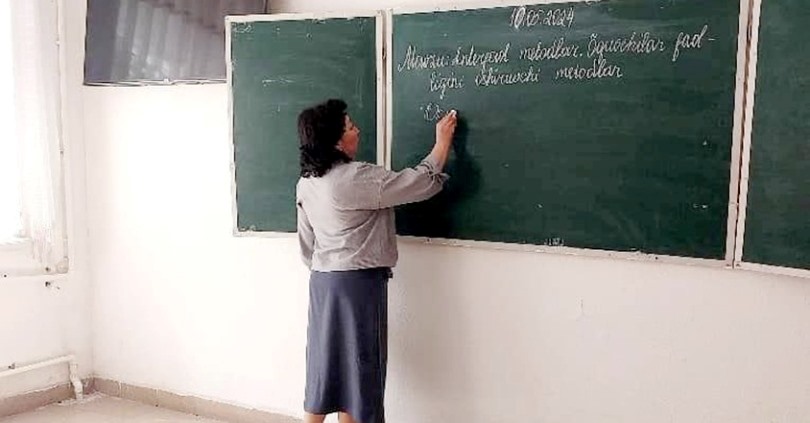 10.05.2024
Mavzu: Interfaol metodlar. O'quvchilar faol-
ligini oshiruvchi metodlar